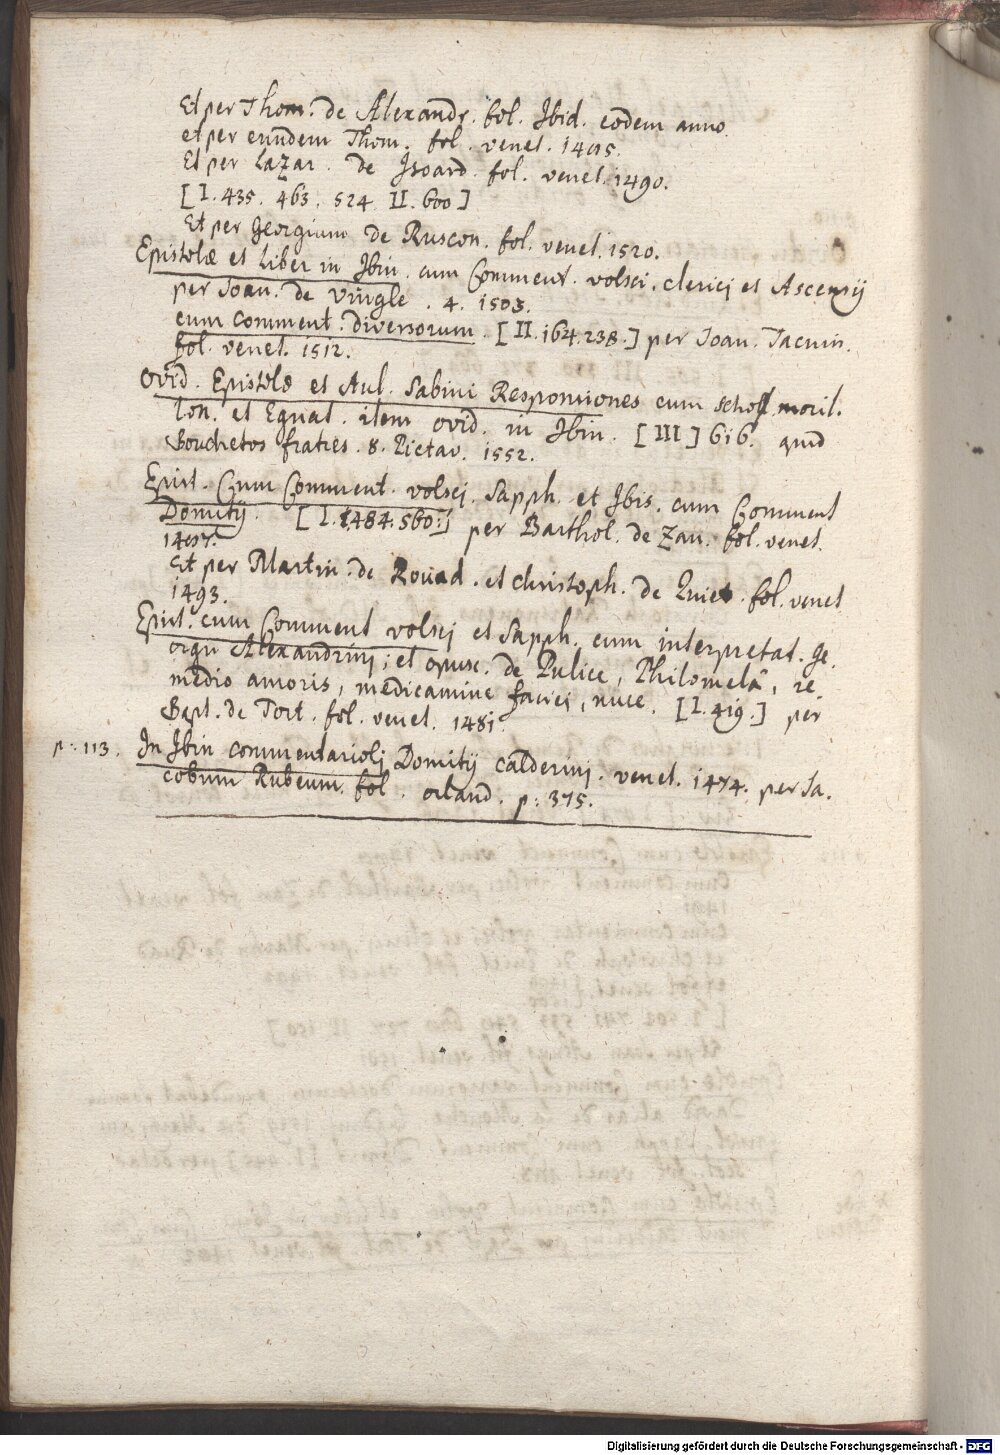 Et per Thom. de Alexandr. fol. Ibid. eodem anno.
et per eundem Thom. fol. venet.
Et per Lazar. de Isoard. fol. venet. 1490.
[I. 435. 463. 524. II. 600]
Et per Georgium de Ruscon. fol. venet. 1520.
Epistolæ et Liber in Ibin. cum Comment. volsci. clerici et Ascensij
per Joan. de Vingle. 4. 1503.
cum Comment. diversorum. [II. 164. 238.] per Joan. Tacuin.
fol. venet. 1512.
Ovid. Epistolæ et Aul. Sabini Responsiones cum schol. moril.
lon. et Egnat. item ovid. in Ibin. [III] 616. apud
Bouchetos fratres. 8. Pictav. 1552.
Epist. Cum Comment. volsci. Sapph. et Ibis. cum Comment
Domitij. [I. 484. 560.] per Barthol. de Zan. fol. venet.
Et per Martin. de Rouad. et christoph. de Quiet. fol. venet
1493.
Epist. cum Comment volscj et Sapph. cum interpretat. Ge.
orgii Alexandrinj, et opusc. de Pulice, Philomelâ, re.
medio amoris, medicamine faciei, nuce. [I. 419.] per
Bapt. de Tort. fol. venet. 1481.
p. 113. In Ibin commentariolj Domitij calderinj. venet. 1474. per Ja.
cobum Rubeum. fol. orland. p: 375.
Digitalisierung gefördert durch die Deutsche Forschungsgemeinschaft - DFG